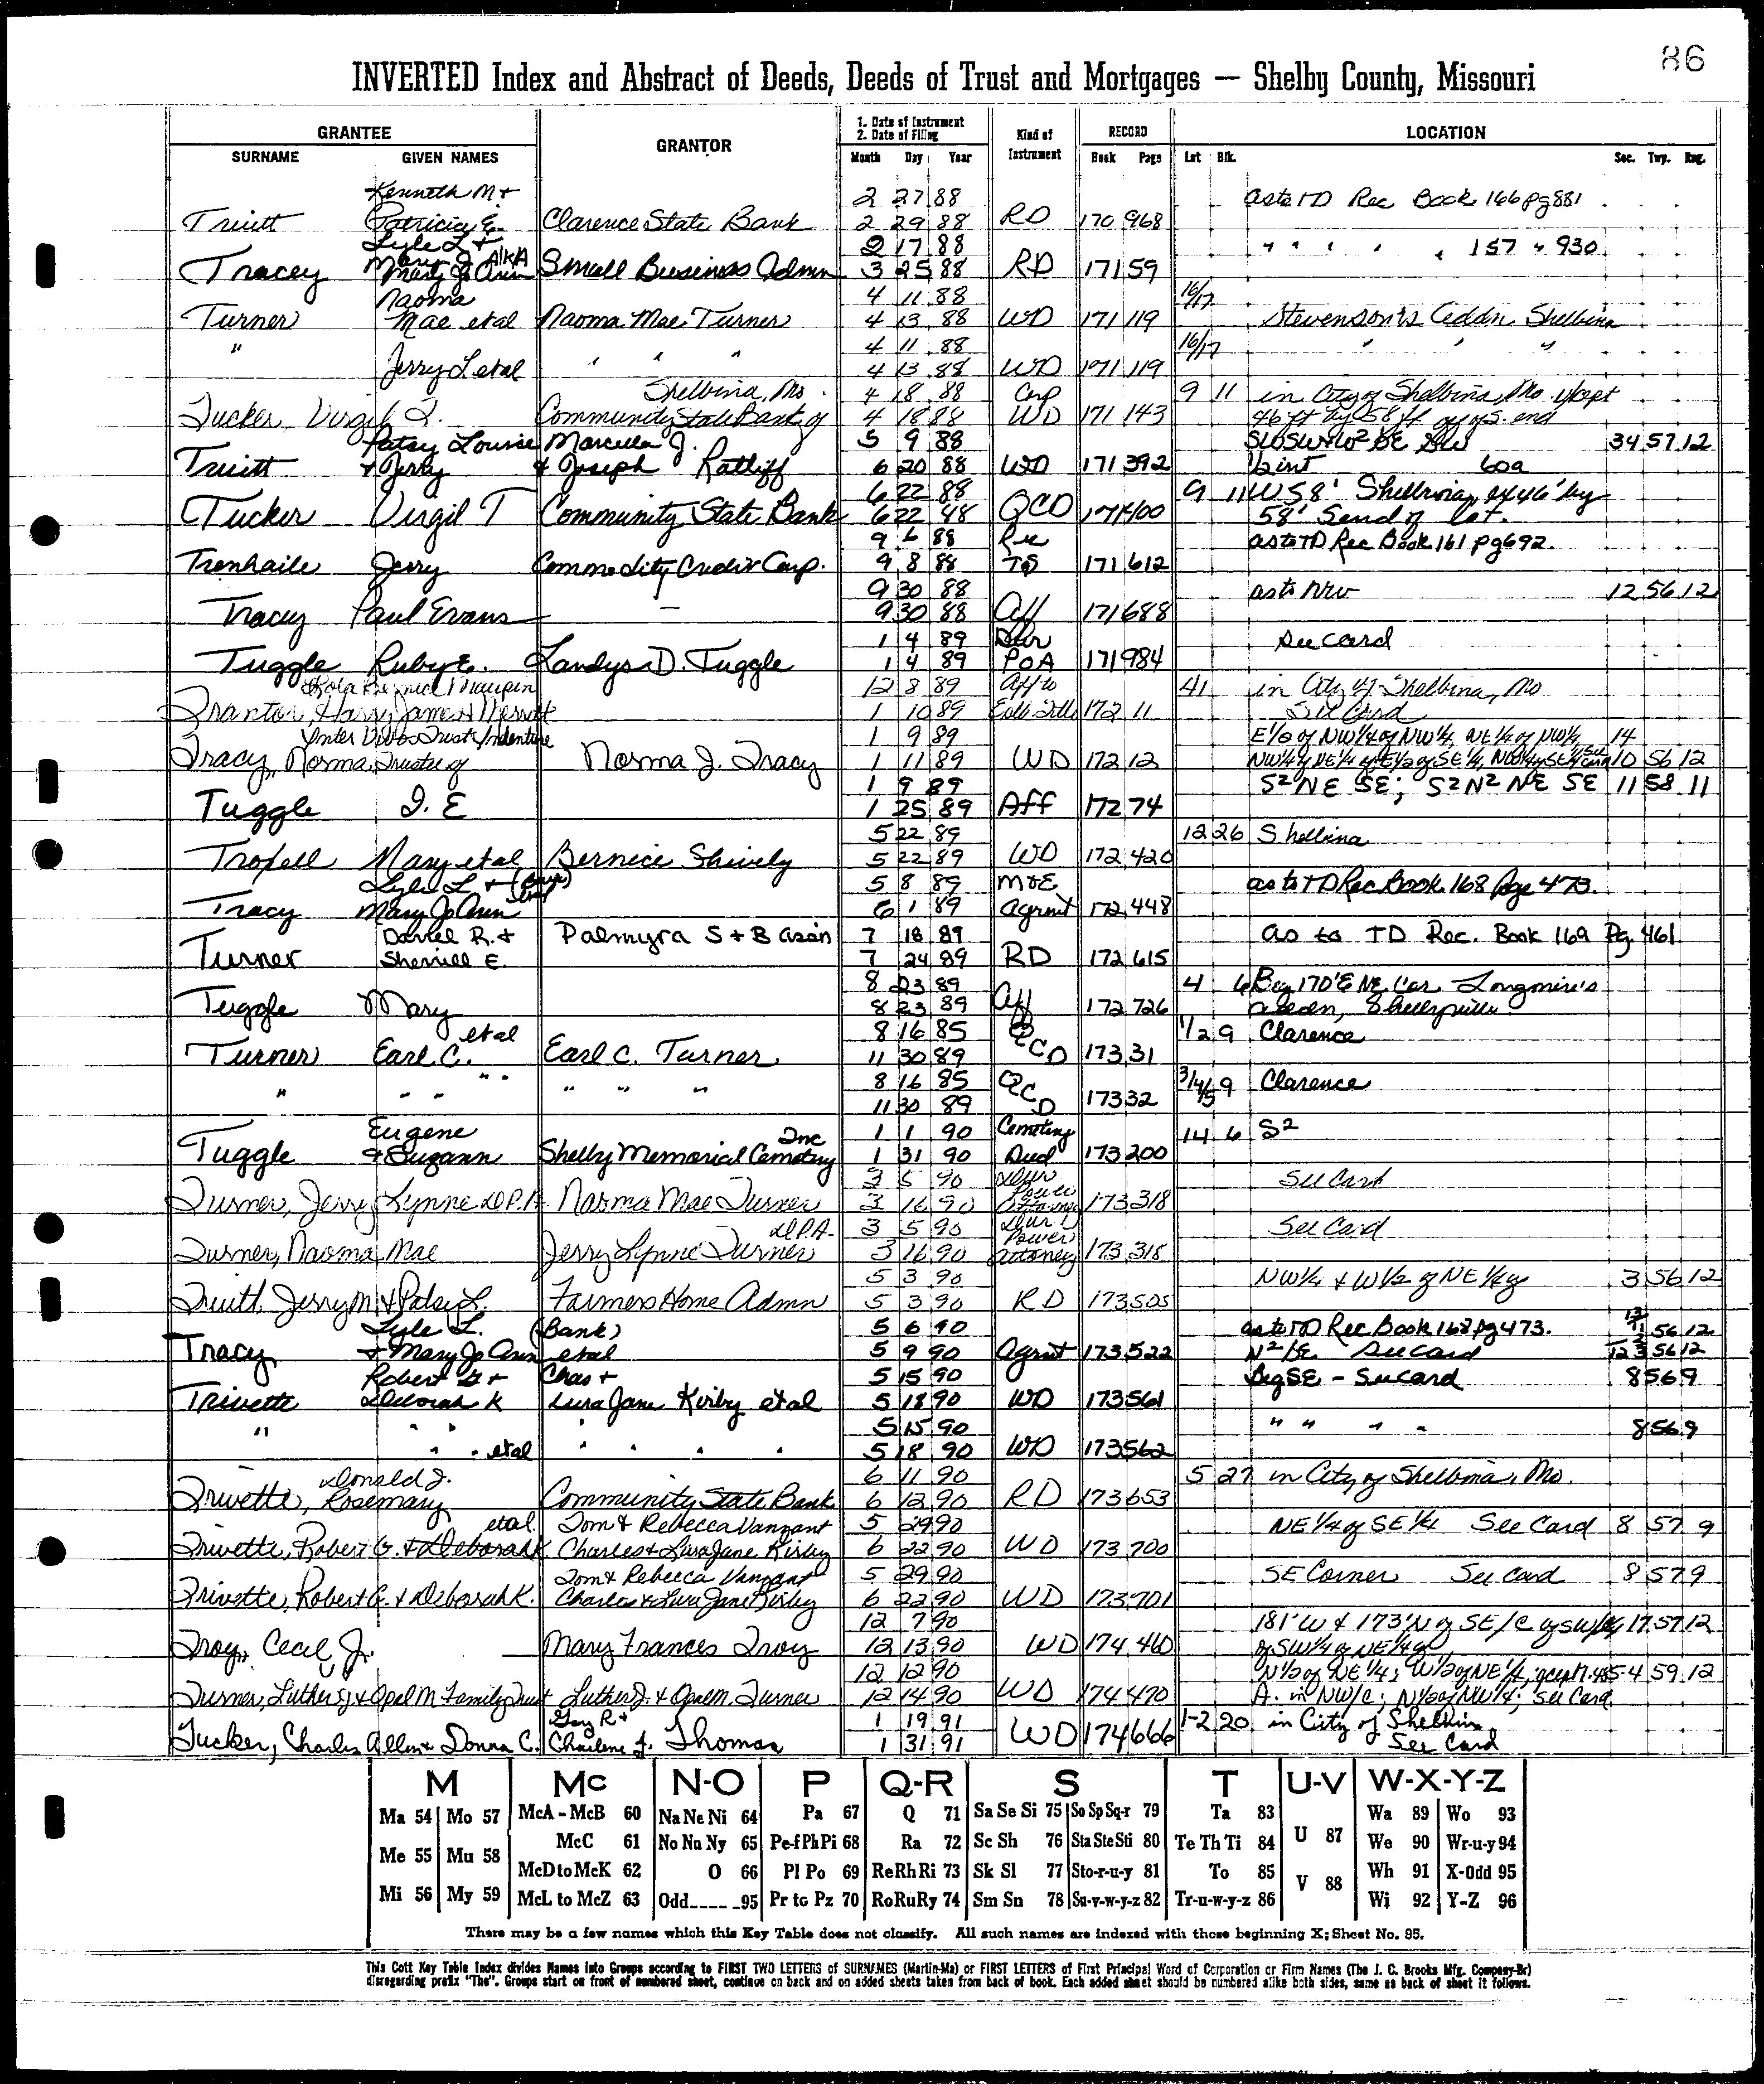 86
INVERTED Index and Abstract of Deeds, Deeds of Trust and Mortgages — Shelby County, Missouri
GRANTEE GRANTOR 1. Date of Instrument 2. Date of Filing Kind of Instrument RECORD LOCATION
SURNAME GIVEN NAMES Month Day Year Book Page Lot Blk. Sec. Twp. Rng.
Kenneth M + 2 27 88 as to TD Rec Book 166 pg 881
Truitt Patricia E. Clarence State Bank 2 29 88 RD 170 968
Lyle L + 2 17 88 " " " " " 157 " 930
Mary J. A/K/A
Tracey Mary Jo Ann Small Business Admn 3 25 88 RD 171 59
Naoma 4 11 88 16/17
Turner Mae etal Naoma Mae Turner 4 13 88 WD 171 119 Stevenson's Addn, Shelbina
" " " " 4 11 88 16/17 " " "
Jerry L etal 4 13 88 WD 171 119
Shelbina, Mo. 4 18 88 Corp 9 11 in City of Shelbina, Mo. except
Tucker, Virgil T. Community State Bank of 4 18 88 WD 171 143 46 ft by 58 ft of S. end
Patsy Louise Marcella J. 5 9 88 34 57 12
Truitt + Jerry + Joseph Ratliff 6 20 88 WD 171 392 1/2 int 60a
6 22 88 9 11 W 58' Shelbina, ex 46' by
Tucker Virgil T Community State Bank 6 22 48 QCD 171 400 58' S end of lot.
9 6 88 Rec as to TD Rec Book 161 pg 692.
Trenhaile Jerry Commodity Credit Corp. 9 8 88 TD 171 612
9 30 88 as to NW 12 56 12
Tracy Paul Evans — 9 30 88 Aff 171 688
1 4 89 Dur See Card
Tuggle Ruby E. Landys D. Tuggle 1 4 89 POA 171 984
12 8 89 Aff to 41 in City of Shelbina, Mo
Harry James Merritt 1 10 89 172 11 See Card
Inter Vivos Trust Indenture 1 9 89 E 1/2 of NW 1/4 of NW 1/4, NE 1/4 of NW 1/4, 14
Tracy, Norma, Trustee of Norma J. Tracy 1 11 89 WD 172 12 10 56 12
1 9 89 S2 NE SE; S2 N2 NE SE 11 58 11
Tuggle I. E 1 25 89 Aff 172 74
5 22 89 12 26 Shelbina
Troxell Mary etal Bernice Shively 5 22 89 WD 172 420
Lyle L + (Bank) 5 8 89 M+E as to TD Rec Book 168 Page 473.
Tracy Mary Jo Ann 6 1 89 Agrmt 172 448
Daniel R. + Palmyra S + B Assn 7 18 89 as to TD Rec. Book 169 Pg. 461
Turner Sherrill E. 7 24 89 RD 172 615
8 23 89 4 6 Beg 170' E NE Cor Longmire's
Tuggle Mary 8 23 89 Aff 172 726 Addn, Shelbyville
etal 8 16 85 1/2 9 Clarence
Turner Earl C. Earl C. Turner 11 30 89 QCD 173 31
" " " " " " " 8 16 85 QCD 3/4/5 9 Clarence
11 30 89 173 32
Eugene Inc 1 1 90 Cemetery 14 6 S2
Tuggle + Suzann Shelby Memorial Cemetery 1 31 90 Deed 173 200
3 5 90 Dur Power See Card
Turner, Jerry Lynne D.P.A. Naoma Mae Turner 3 16 90 Attorney 173 318
D.P.A. 3 5 90 Dur Power See Card
Turner, Naoma Mae Jerry Lynne Turner 3 16 90 Attorney 173 318
5 3 90 NW 1/4 + W 1/2 of NE 1/4 of 3 56 12
Truitt, Jerry M. + Patsy L. Farmers Home Admn 5 3 90 RD 173 505
Lyle L. (Bank) 5 6 90 as to TD Rec Book 168 pg 473. 56 12
Tracy + Mary Jo Ann etal 5 9 90 Agrmt 173 522 See Card 56 12
Robert G + Chas + 5 15 90 Beg SE - See Card 8 56 9
Trivette Deborah K Lura Jane Kirby etal 5 18 90 WD 173 561
" " " 5 15 90 " " " " 8 56 9
" " etal " " " " 5 18 90 WD 173 562
Donald J. 6 11 90 5 27 in City of Shelbina, Mo.
Trivette, Rosemary Community State Bank 6 12 90 RD 173 653
etal Tom + Rebecca Vanzant 5 29 90 NE 1/4 of SE 1/4 See Card 8 57 9
Trivette, Robert G. + Deborah K Charles + Lura Jane Kirby 6 22 90 WD 173 700
Tom + Rebecca Vanzant 5 29 90 SE Corner See Card 8 57 9
Trivette, Robert G. + Deborah K. Charles + Lura Jane Kirby 6 22 90 WD 173 701
12 7 90 181' W + 173' N of SE/C of 17 57 12
Troy, Cecil Jr. Mary Frances Troy 12 13 90 WD 174 460 of SW 1/4 of NE 1/4 of
12 12 90 N 1/2 of NE 1/4; W 1/2 of NE 1/4, 4 59 12
Turner, Luther J. + Opal M Family Trust Luther J. + Opal M. Turner 12 14 90 WD 174 470 A. in NW/C; N 1/2 of NW 1/4; See Card
Gary R + 1 19 91 1-2 20 in City of Shelbina
Tucker, Charles Allen + Donna C. Charlene J. Thomas 1 31 91 WD 174 666 See Card
M Mc N-O P Q-R S T U-V W-X-Y-Z
Ma 54 Mo 57 McA - McB 60 Na Ne Ni 64 Pa 67 Q 71 Sa Se Si 75 So Sp Sq-r 79 Ta 83 U 87 Wa 89 Wo 93
Me 55 Mu 58 McC 61 No Nu Ny 65 Pe-f Ph Pi 68 Ra 72 Sc Sh 76 Sta Ste Sti 80 Te Th Ti 84 We 90 Wr-u-y 94
McD to McK 62 O 66 Pl Po 69 Re Rh Ri 73 Sk Sl 77 Sto-r-u-y 81 To 85 V 88 Wh 91 X-Odd 95
Mi 56 My 59 McL to McZ 63 Odd 95 Pr to Pz 70 Ro Ru Ry 74 Sm Sn 78 Su-v-w-y-z 82 Tr-u-w-y-z 86 Wi 92 Y-Z 96
There may be a few names which this Key Table does not classify. All such names are indexed with those beginning X; Sheet No. 95.
This Cott Key Table Index divides Names into Groups according to FIRST TWO LETTERS of SURNAMES (Martin-Ma) or FIRST LETTERS of First Principal Word of Corporation or Firm Names (The J. C. Brooks Mfg. Company-Br)
disregarding prefix "The". Groups start on front of numbered sheet, continue on back and on added sheets taken from back of book. Each added sheet should be numbered alike both sides, same as back of sheet it follows.